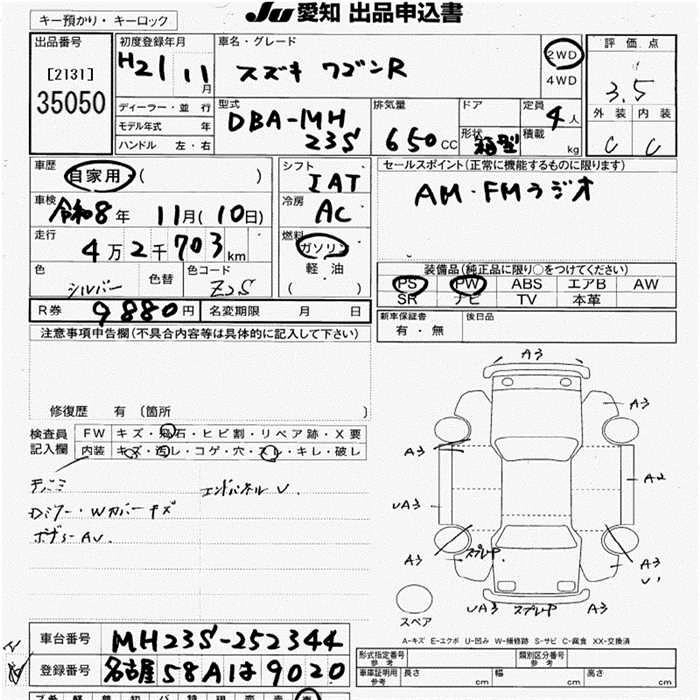 キー預かり・キーロック
Ju 愛知 出品申込書
出品番号
[2131]
35050
初度登録年月
H21 11月
車名・グレード
スズキ ワゴンR
2WD
4WD
評価点
3.5
外装 内装
C C
ディーラー・並行
モデル年式 年
ハンドル 左・右
型式
DBA-MH
23S
排気量
650 CC
ドア
形状
箱型
定員
4人
積載
kg
車歴
自家用・( )
車検
令和8年 11月(10日)
走行
4万2千703km
色
シルバー
色替
色コード
Z2S
シフト
IAT
冷房
AC
燃料
ガソリン
軽油
( )
セールスポイント(正常に機能するものに限ります)
AM・FMラジオ
装備品(純正品に限り○をつけてください)
PS PW ABS エアB AW
SR ナビ TV 本革
R券 9880円 名変期限 月 日
新車保証書
有・無
後日品
注意事項申告欄(不具合内容等は具体的に記入して下さい)
修復歴 有 〔箇所 〕
検査員
記入欄
FW キズ・飛石・ヒビ割・リペア跡・X要
内装 キズ・汚レ・コゲ・穴・スレ・キレ・破レ
エンドパネル U.
Dミラー・Wカバーキズ
ボデーAU.
A3
A3
A3
A2
UA3
A3
スプレ中
A3
U1
UA3 スプレ中 A3
スペア
A-キズ E-エクボ U-凹み W-補修跡 S-サビ C-腐食 XX-交換済
車台番号 MH23S-252344
登録番号 名古屋58Aは9020
形式指定番号
参考
類別区分番号
参考
車庫証明用
参考
長さ cm 幅 cm 高さ cm